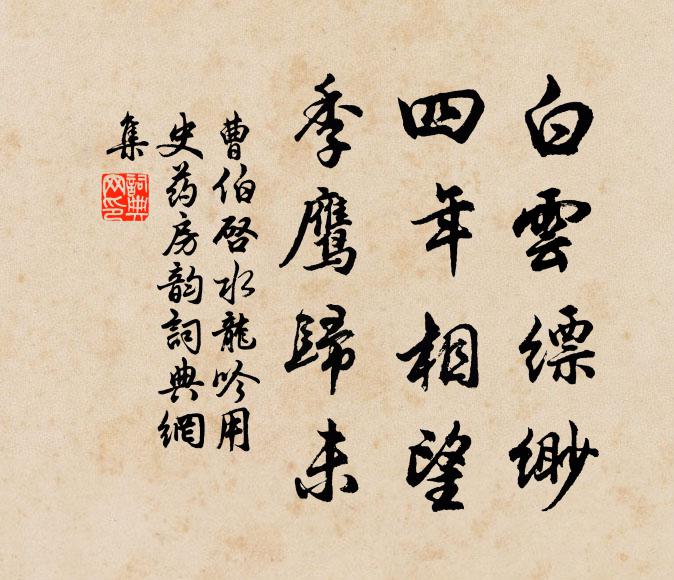 白雲縹緲
四年相望
季鷹歸未
曹伯啓水龍吟用
史药房韵詞典網
集
詞典網印